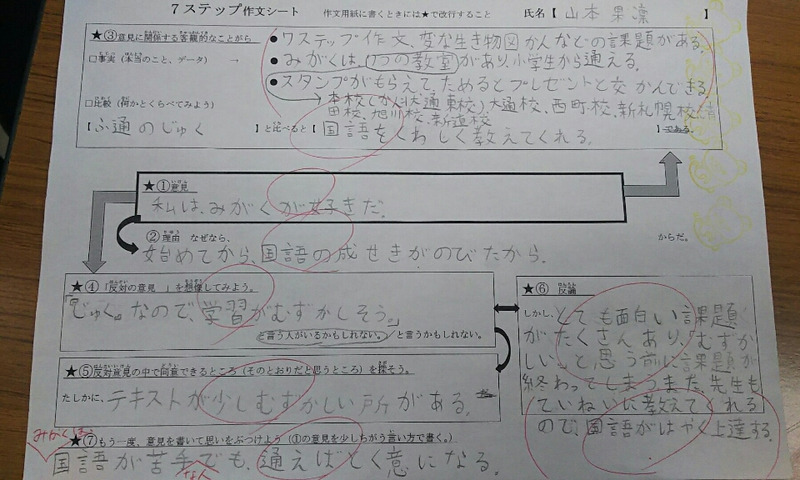 7ステップ作文シート 作文用紙に書くときには★で改行すること 氏名【山本果凛】
★③意見に関係する客観的なことがら
●7ステップ作文、変な生き物図かんなどの課題がある。
□事実（本当のこと、データ） →
●みがくは、7つの教室があり、小学生から通える。
●スタンプがもらえて、ためるとプレゼントと交かんできる。
本校でしか(大通東校)、大通校、西町校、新札幌校、清
田校、旭川校、新道校
□比較（何かとくらべてみよう）
【ふ通のじゅく】と比べると【国語をくわしく教えてくれる。】である。
★①意見
私は、みがくが好きだ。
②理由 なぜなら、
始めてから、国語の成せきがのびたから。 からだ。
★④「反対の意見 」を想像してみよう。
「『じゅく』なので、学習がむずかしそう。」
と言う人がいるかもしれない。／と言うかもしれない。
★⑤反対意見の中で同意できるところ（そのとおりだと思うところ）を探そう。
たしかに、テキストが少しむずかしい所がある。
★⑥ 反論
しかし、とても面白い課題
がたくさんあり、「むずか
しい。」と思う前に課題が
終わってしまう。また、先生も
ていねいに教えてくれる
ので、国語がはやく上達する。
★⑦もう一度、意見を書いて思いをぶつけよう（①の意見を少しちがう言い方で書く。）
みがくは
国語が苦手な人でも、通えばとく意になる。